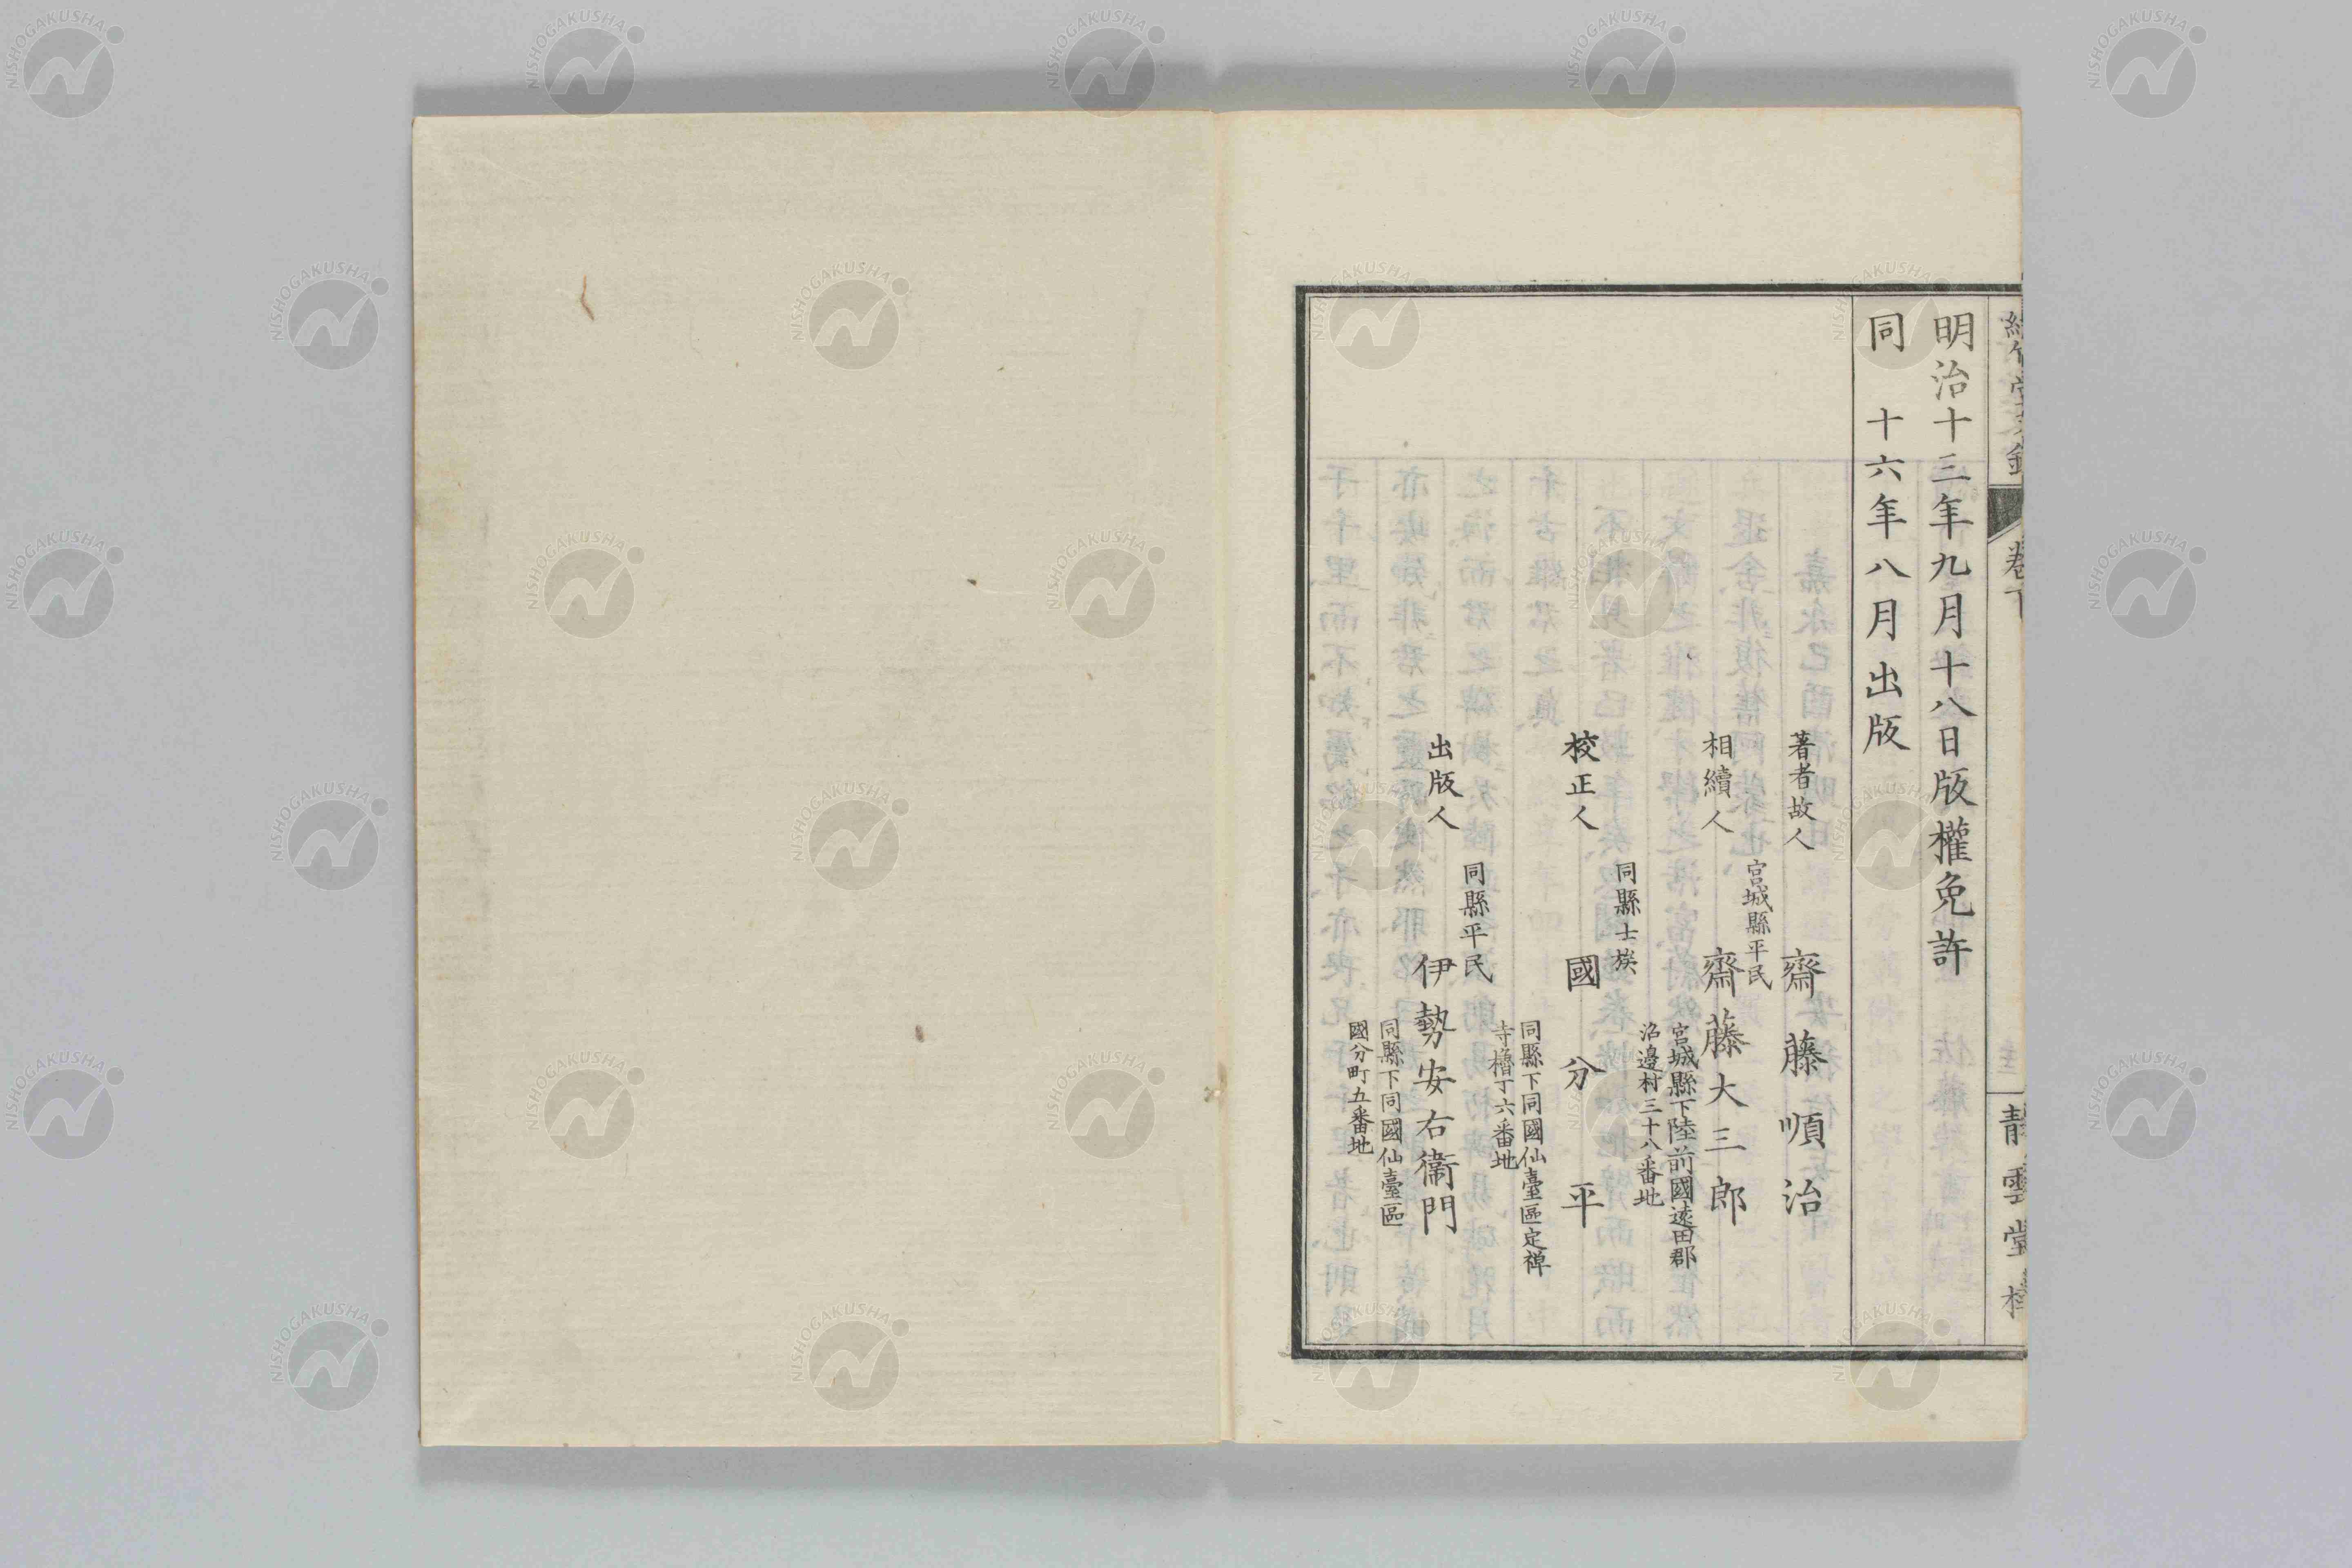 明治十三年九月十八日版權免許
同　十六年八月出版
著者故人　齋藤順治
相續人　宮城縣平民　齋藤大三郎
宮城縣下陸前國遠田郡
沼邊村三十八番地
校正人　同縣士族　國分平
同縣下同國仙臺區定禅
寺櫓丁六番地
出版人　同縣平民　伊勢安右衞門
同縣下同國仙臺區
國分町五番地
卷下
靜雲堂
NISHOGAKUSHA